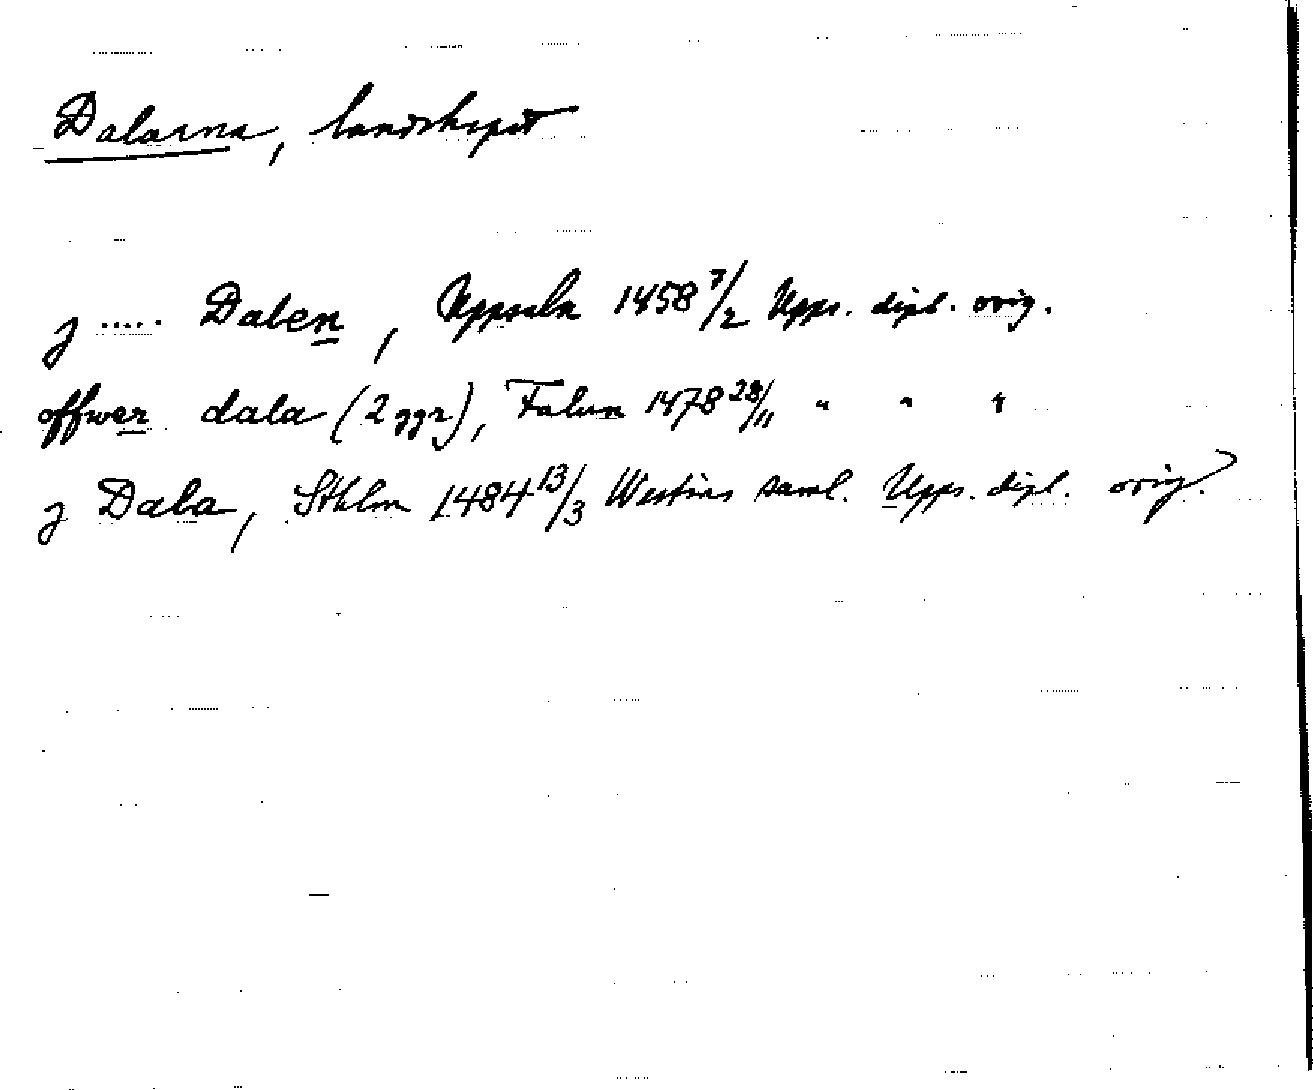 Dalarna, landskapet
j ..... Dalen, Uppsala 1458 7/2 Upps. dipl. orig.
offwer dala (2 ggr), Falun 1478 28/11 " " "
j Dala, Sthlm 1484 13/3 Westins saml. Upps. dipl. orig.